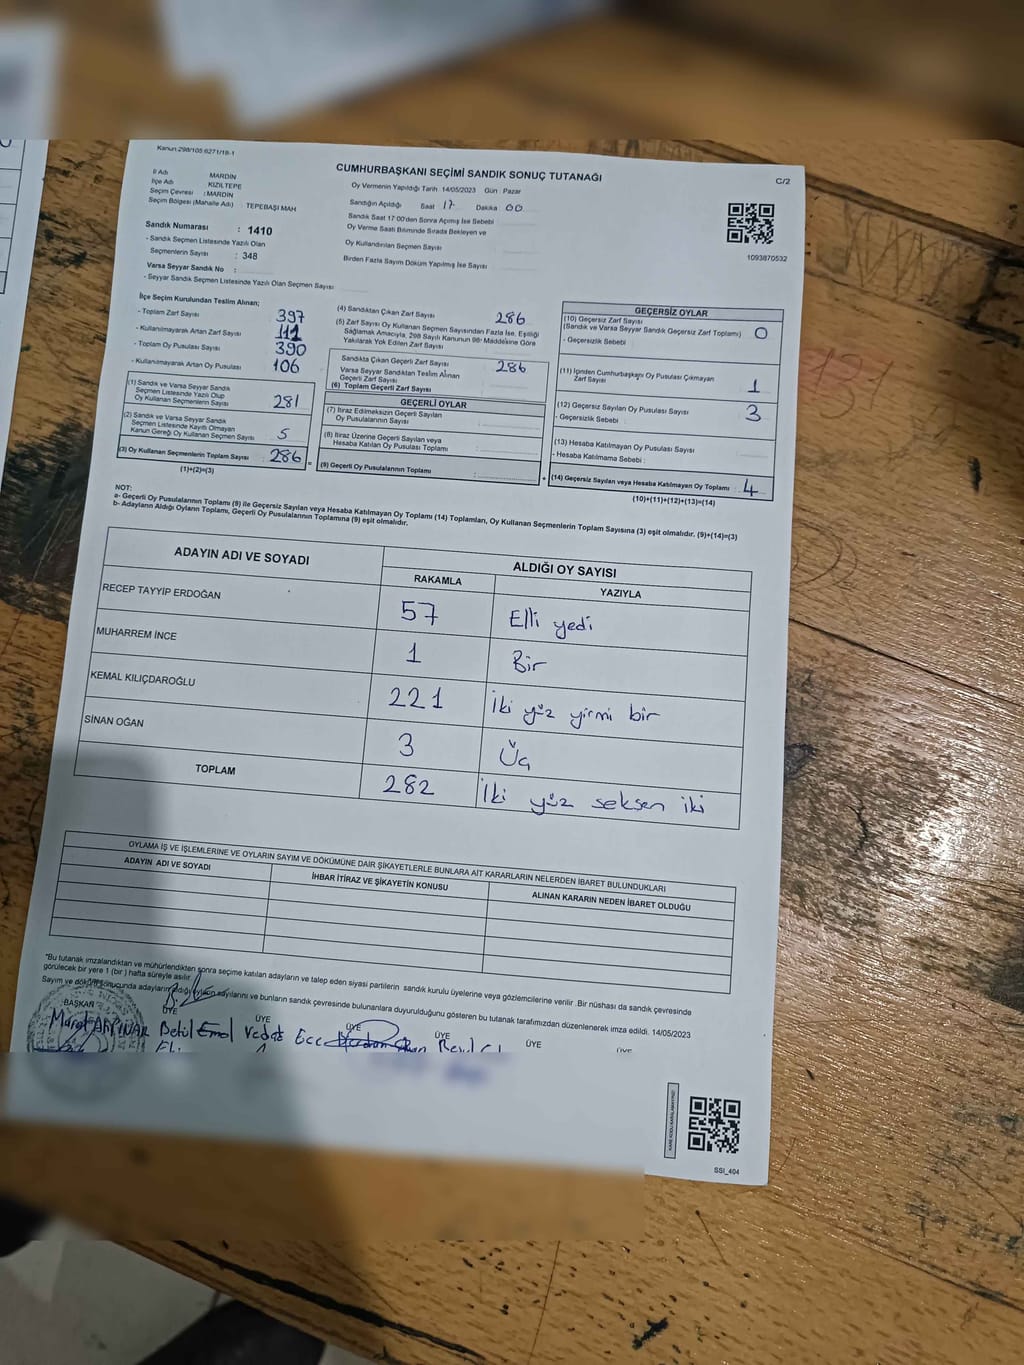 Kanun:298/105:6271/18-1
CUMHURBAŞKANI SEÇİMİ SANDIK SONUÇ TUTANAĞI
C/2
İl Adı MARDİN
İlçe Adı KIZILTEPE
Seçim Çevresi : MARDİN
Seçim Bölgesi (Mahalle Adı) : TEPEBAŞI MAH
Oy Vermenin Yapıldığı Tarih 14/05/2023 Gün : Pazar
Sandığın Açıldığı Saat 17 Dakika 00
Sandık Saat 17:00'den Sonra Açımış İse Sebebi
Oy Verme Saati Bitiminde Sırada Bekleyen ve
Oy Kullandırılan Seçmen Sayısı
Birden Fazla Sayım Döküm Yapılmış İse Sayısı
1093870532
Sandık Numarası : 1410
- Sandık Seçmen Listesinde Yazılı Olan
Seçmenlerin Sayısı : 348
Varsa Seyyar Sandık No :
- Seyyar Sandık Seçmen Listesinde Yazılı Olan Seçmen Sayısı :
İlçe Seçim Kurulundan Teslim Alınan;
- Toplam Zarf Sayısı 397
- Kullanılmayarak Artan Zarf Sayısı 111
- Toplam Oy Pusulası Sayısı 390
- Kullanılmayarak Artan Oy Pusulası 106
(1) Sandık ve Varsa Seyyar Sandık
Seçmen Listesinde Yazılı Olup
Oy Kullanan Seçmenlerin Sayısı 281
(2) Sandık ve Varsa Seyyar Sandık
Seçmen Listesinde Kayıtlı Olmayan
Kanun Gereği Oy Kullanan Seçmen Sayısı 5
(3) Oy Kullanan Seçmenlerin Toplam Sayısı : 286
(1)+(2)=(3)
(4) Sandıktan Çıkan Zarf Sayısı 286
(5) Zarf Sayısı Oy Kullanan Seçmen Sayısından Fazla İse, Eşitliği
Sağlamak Amacıyla, 298 Sayılı Kanunun 98. Maddesine Göre
Yakılarak Yok Edilen Zarf Sayısı
Sandıkta Çıkan Geçerli Zarf Sayısı 286
Varsa Seyyar Sandıktan Teslim Alınan
Geçerli Zarf Sayısı
(6) Toplam Geçerli Zarf Sayısı
GEÇERLİ OYLAR
(7) İtiraz Edilmeksizin Geçerli Sayılan
Oy Pusulalarının Sayısı
(8) İtiraz Üzerine Geçerli Sayılan veya
Hesaba Katılan Oy Pusulası Toplamı
= (9) Geçerli Oy Pusulalarının Toplamı :
GEÇERSİZ OYLAR
(10) Geçersiz Zarf Sayısı
(Sandık ve Varsa Seyyar Sandık Geçersiz Zarf Toplamı) 0
- Geçersizlik Sebebi
(11) İçinden Cumhurbaşkanı Oy Pusulası Çıkmayan
Zarf Sayısı 1
(12) Geçersiz Sayılan Oy Pusulası Sayısı 3
- Geçersizlik Sebebi :
(13) Hesaba Katılmayan Oy Pusulası Sayısı
- Hesaba Katılmama Sebebi :
+ (14) Geçersiz Sayılan veya Hesaba Katılmayan Oy Toplamı : 4
(10)+(11)+(12)+(13)=(14)
NOT:
a- Geçerli Oy Pusulalarının Toplamı (9) ile Geçersiz Sayılan veya Hesaba Katılmayan Oy Toplamı (14) Toplamları, Oy Kullanan Seçmenlerin Toplam Sayısına (3) eşit olmalıdır. (9)+(14)=(3)
b- Adayların Aldığı Oyların Toplamı, Geçerli Oy Pusulalarının Toplamına (9) eşit olmalıdır.
ADAYIN ADI VE SOYADI
ALDIĞI OY SAYISI
RAKAMLA YAZIYLA
RECEP TAYYİP ERDOĞAN 57 Elli yedi
MUHARREM İNCE 1 Bir
KEMAL KILIÇDAROĞLU 221 İki yüz yirmi bir
SİNAN OĞAN 3 Üç
TOPLAM 282 İki yüz seksen iki
OYLAMA İŞ VE İŞLEMLERİNE VE OYLARIN SAYIM VE DÖKÜMÜNE DAİR ŞİKAYETLERLE BUNLARA AİT KARARLARIN NELERDEN İBARET BULUNDUKLARI
ADAYIN ADI VE SOYADI
İHBAR İTİRAZ VE ŞİKAYETİN KONUSU
ALINAN KARARIN NEDEN İBARET OLDUĞU
*Bu tutanak imzalandıktan ve mühürlendikten sonra seçime katılan adayların ve talep eden siyasi partilerin sandık kurulu üyelerine veya gözlemcilerine verilir .Bir nüshası da sandık çevresinde
görülecek bir yere 1 (bir ) hafta süreyle asılır.
Sayım ve döküm sonucunda adayların aldığı oyların sayılarını ve bunların sandık çevresinde bulunanlara duyurulduğunu gösteren bu tutanak tarafımızdan düzenlenerek imza edildi. 14/05/2023
BAŞKAN ÜYE ÜYE ÜYE ÜYE ÜYE ÜYE
Murat AKPINAR Betül Vedat Ece
SSI_404